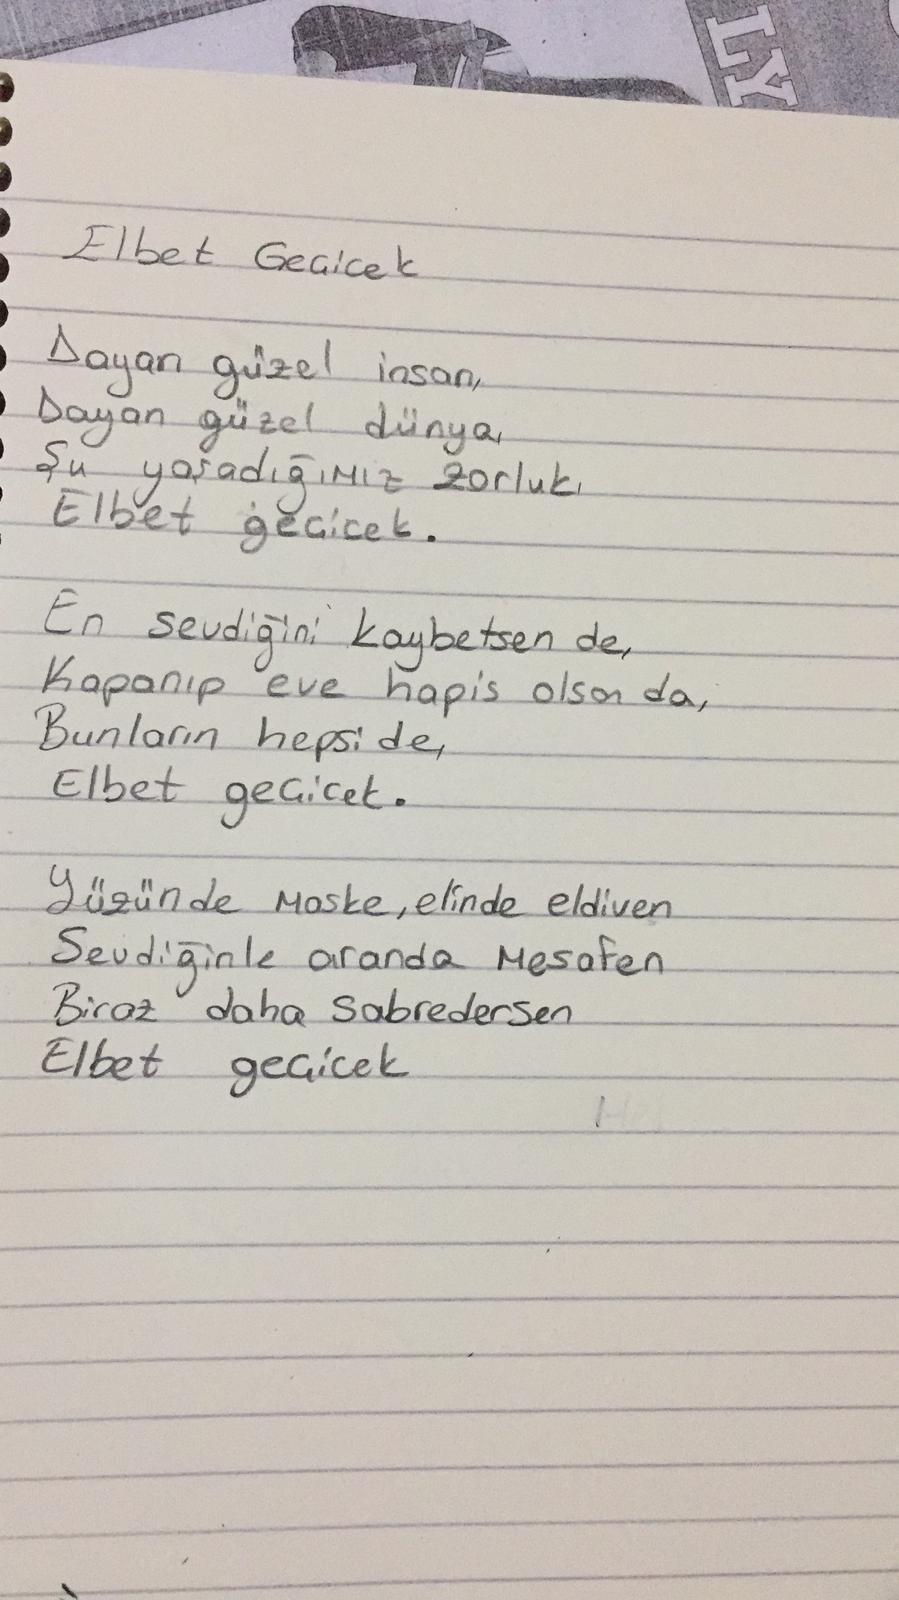 LY
Elbet Geçicek
Dayan güzel insan,
Dayan güzel dünya,
Şu yaşadığımız zorluk,
Elbet geçicek.
En sevdiğini kaybetsen de,
Kapanıp eve hapis olsan da,
Bunların hepsi de,
Elbet geçicek.
Yüzünde maske, elinde eldiven
Sevdiğinle aranda mesafen
Biraz daha sabredersen
Elbet geçicek